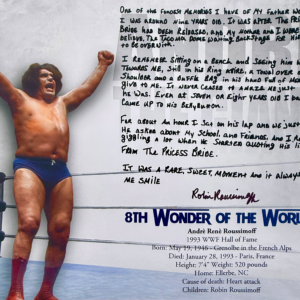 One of the fondest memories I have of my Father w
I was around nine years old. It was after The Pri
Bride had been released, and my Mother and I were
believe, The Tacoma Dome waiting backstage for him
to be over with.
I remember sitting on a bench and seeing him w
towards me, still in his ring attire, a towel over
shoulder and a duffle bag in his hand full of
give to me. It never ceased to amaze me just
he was. Even at seven or eight years old I
came up to his bellybutton.
For about an hour I sat on his lap and we just
He asked about my school, and friends, and I re
giggling a lot when he started quoting his li
from The Pricess Bride.
It was a rare, sweet, moment and it always
me smile
Robin Roussimoff
8TH WONDER OF THE WORL
André René Roussimoff
1993 WWF Hall of Fame
Born: May 19, 1946 - Grenolbe in the French Alps
Died: January 28, 1993 - Paris, France
Height: 7'4" Weight: 520 pounds
Home: Ellerbe, NC
Cause of death: Heart attack
Children: Robin Roussimoff